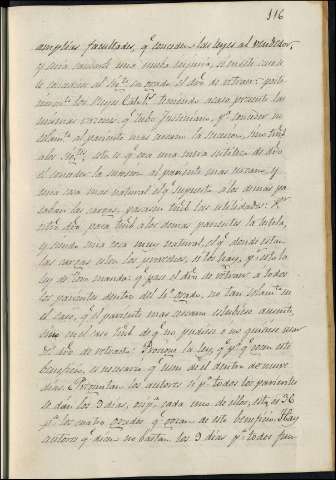 116
amplias facultades, qe conceden las leyes al vendedor,
y seria causarle una nueva injuria, si en este caso
se concediese al Sigte. en grado el dro. de retraer: por lo
mismo los Reyes Catol. teniendo acaso presente las
mismas razones qe tubo Justiniano, pa. conceder no
solamte. al pariente mas cercano la sucesion, sino tambn.
a los Sigtes. este es qe era una mera sutileza de dro.
el conceder la sucesion al pariente mas cercano, y
una cosa mas natural el qe supuesto a los demas pa
saban las cargas, pasasen tamb. las utilidades: Pr.
este dro. pasa tamb. a los demas parientes la tutela,
y siendo una cosa muy natural, el qe donde estan
las cargas esten los provechos, si los hay, pr. esto la
ley de Toro manda qe pase el dro. de retraer a todos
los parientes dentro del 4º grado, no tan solamte. en
el caso, qe el pariente mas cercano estubiese ausente,
sino en el caso tamb. de qe no pudiese o no quisiese usar
del dro. de retracto: Previene la ley, qe pa. qe gozen este
beneficio, es necesario qe usen de el dentro de nueve
dias. Preguntan los autores si pa. todos los parientes
se dan los 9 dias, o pa. cada uno de ellos, esto es 36
pa. los cuatro grados qe gozan de este beneficio. Hay
autores qe dicen no bastan los 9 dias pa. todos pues